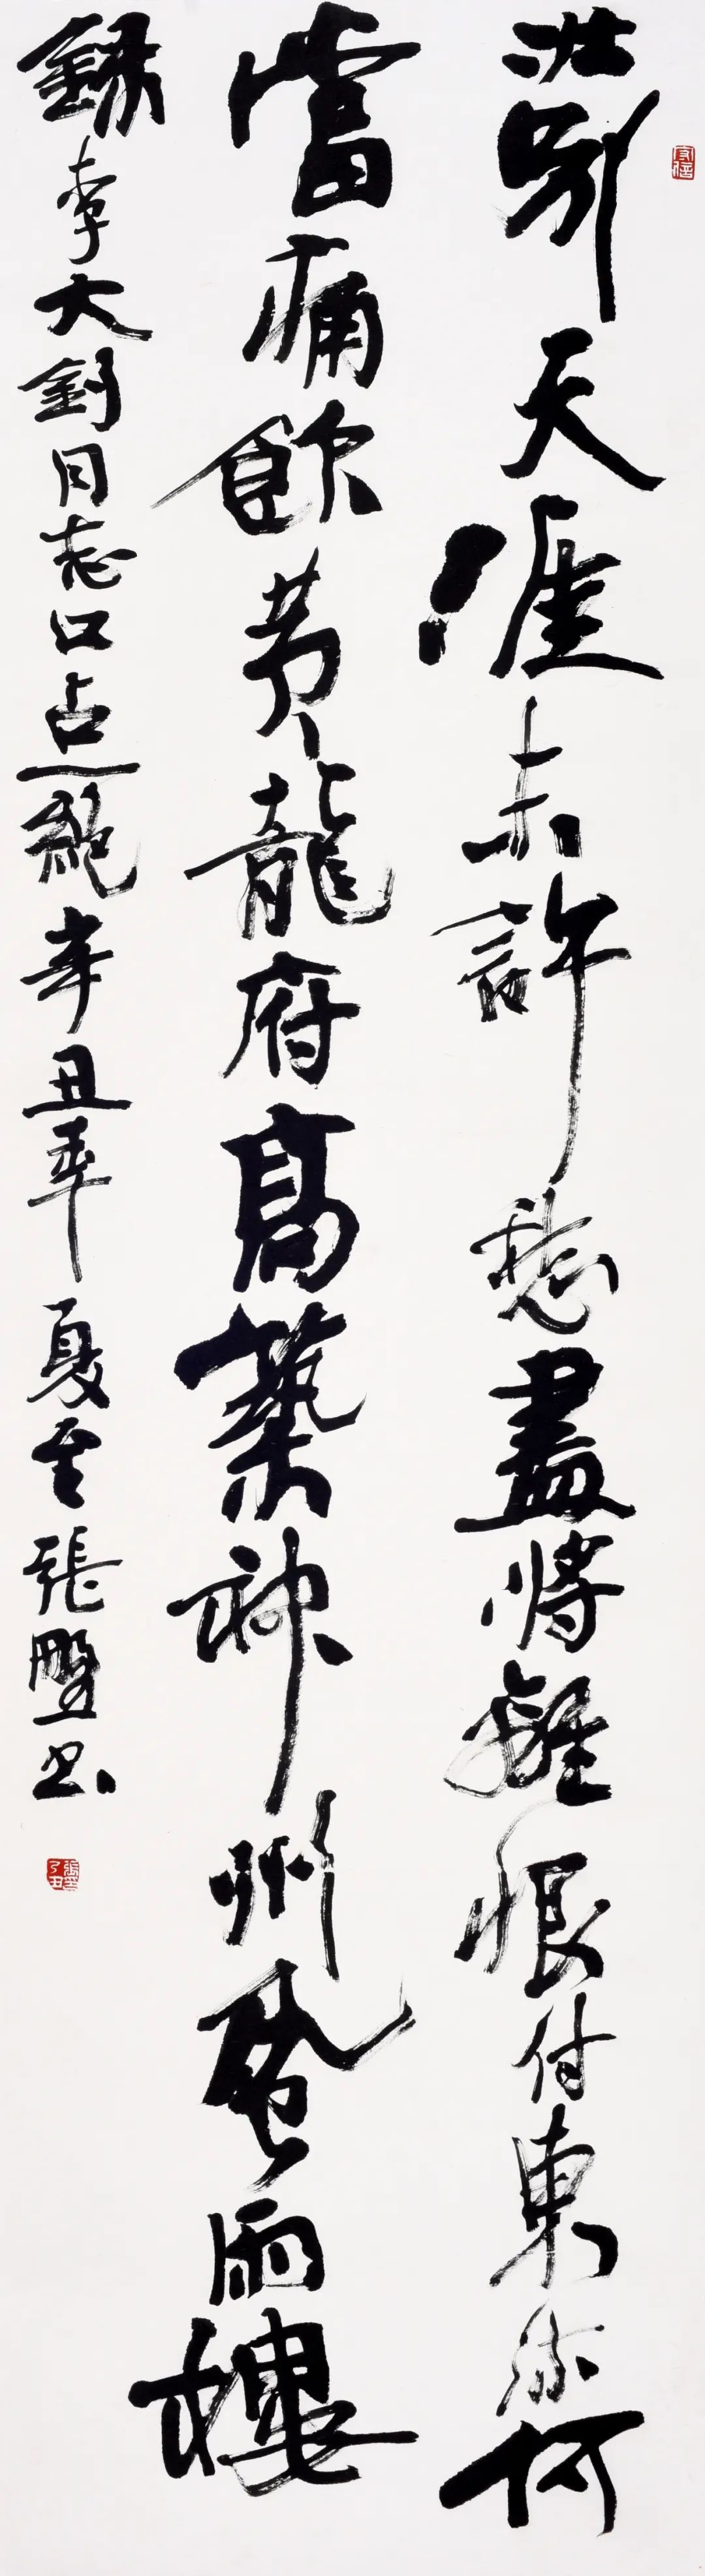 壯別天涯未許愁盡將離恨付東流何
當痛飲黃龍府高築神州風雨樓
錄李大釗同志口占一絕辛丑年夏至張書